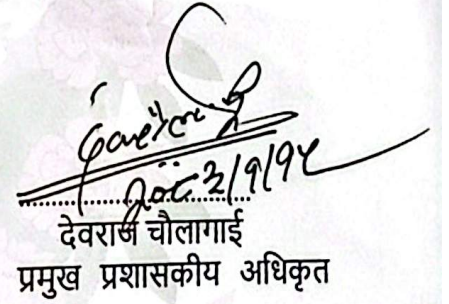 २०८२/९/१५
देवराज चौलागाई
प्रमुख प्रशासकीय अधिकृत